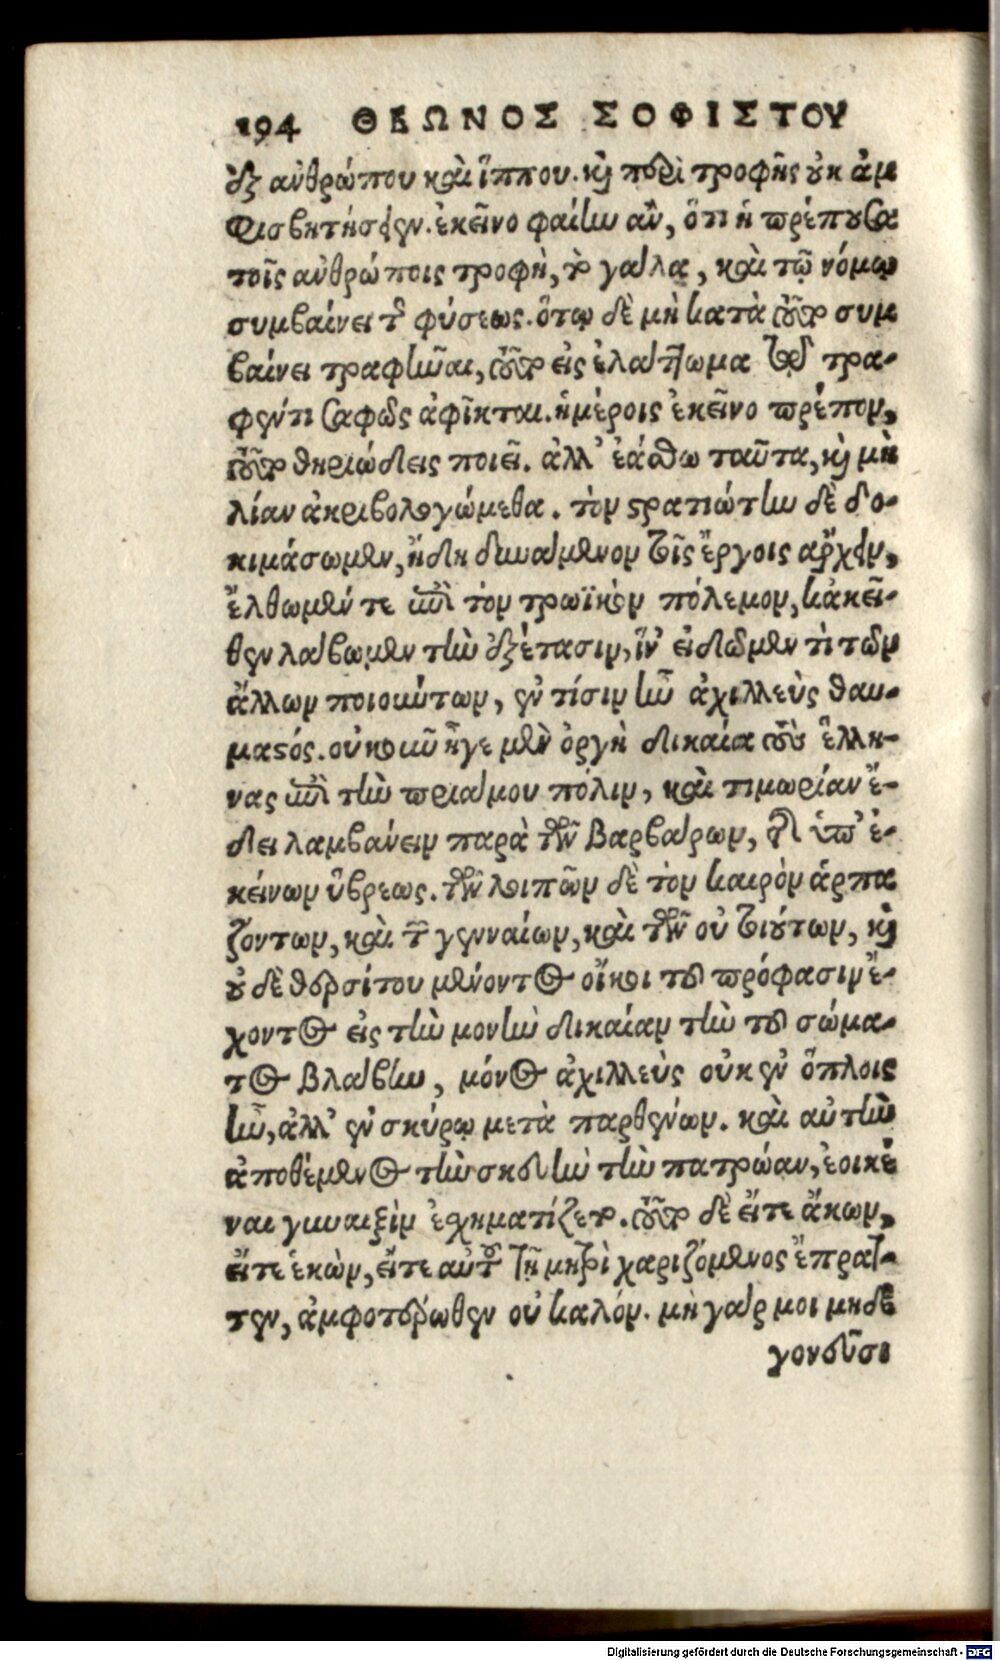 194 ΘΕΩΝΟΣ ΣΟΦΙΣΤΟΥ
ἐξ ἀνθρώπου καὶ ἵππου. καὶ περὶ τροφῆς οὐκ ἀμ
φισβητήσειεν. ἐκεῖνο φαίην ἂν, ὅτι ἡ πρέπουσα
τοῖς ἀνθρώποις τροφὴ, τὸ γάλα, καὶ τῷ νόμῳ
συμβαίνει τῆς φύσεως. ὅτῳ δὲ μὴ κατὰ τοῦτο συμ
βαίνει τραφῆναι, τοῦτο εἰς ἐλάττωμα τῷ τρα-
φέντι σαφῶς ἀφῖκται. ἡμέροις ἐκεῖνο πρέπον,
τοῦτο θηριώδεις ποιεῖ. ἀλλ' ἐάσθω ταῦτα, καὶ μὴ
λίαν ἀκριβολογώμεθα. τὸν στρατιώτην δὲ δο-
κιμάσωμεν, ἤδη δυνάμενον τοῖς ἔργοις ἀρχεῖν,
ἔλθωμέν τε ἐπὶ τὸν τρωϊκὸν πόλεμον, κἀκεῖ-
θεν λάβωμεν τὴν ἐξέτασιν, ἵν' εἰδῶμεν τὶ τῶν
ἄλλων ποιούντων, ἐν τίσιν ἦν ἀχιλλεὺς θαυ-
μαστός. οὐκοῦν ἦγε μὲν ὀργὴ δικαία τοὺς ἕλλη-
νας ἐπὶ τὴν πριάμου πόλιν, καὶ τιμωρίαν ἔ-
δει λαμβάνειν παρὰ τῶν βαρβάρων, τῆς ὑπ' ἐ-
κείνων ὕβρεως. τῶν λοιπῶν δὲ τὸν καιρὸν ἁρπα
ζόντων, καὶ τῶν γενναίων, καὶ τῶν οὐ τοιούτων, καὶ
οὐδὲ θερσίτου μένοντος οἴκοι τοῦ πρόφασιν ἔ-
χοντος εἰς τὴν μονὴν δικαίαν τὴν τοῦ σώμα-
τος βλάβην, μόνος ἀχιλλεὺς οὐκ ἐν ὅπλοις
ἦν, ἀλλ' ἐν σκύρῳ μετὰ παρθένων. καὶ αὐτὴν
ἀποθέμενος τὴν σκευὴν τὴν πατρώαν, ἐοικέ
ναι γυναιξὶν ἐσχηματίζετο. τοῦτο δὲ εἴτε ἄκων,
εἴτε ἑκὼν, εἴτε αὐτὸ τῇ μητρὶ χαριζόμενος ἔπρατ-
τεν, ἀμφοτέρωθεν οὐ καλόν. μὴ γάρ μοι μηδὲ
γονεῦσι
Digitalisierung gefördert durch die Deutsche Forschungsgemeinschaft - DFG